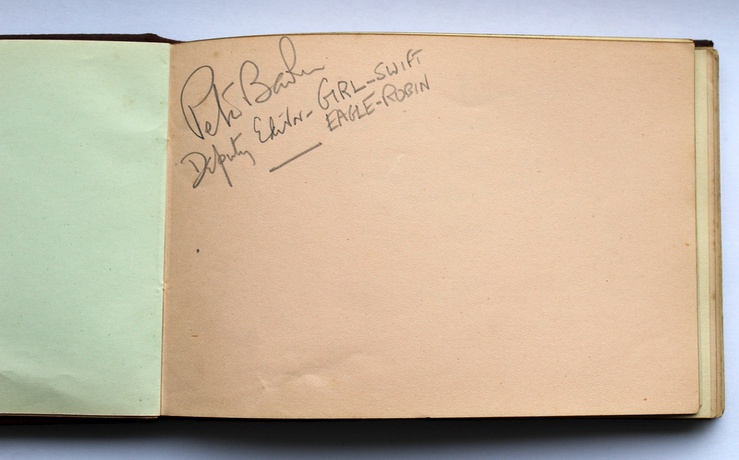 Peter
Deputy Editor - GIRL - SWIFT
EAGLE - ROBIN